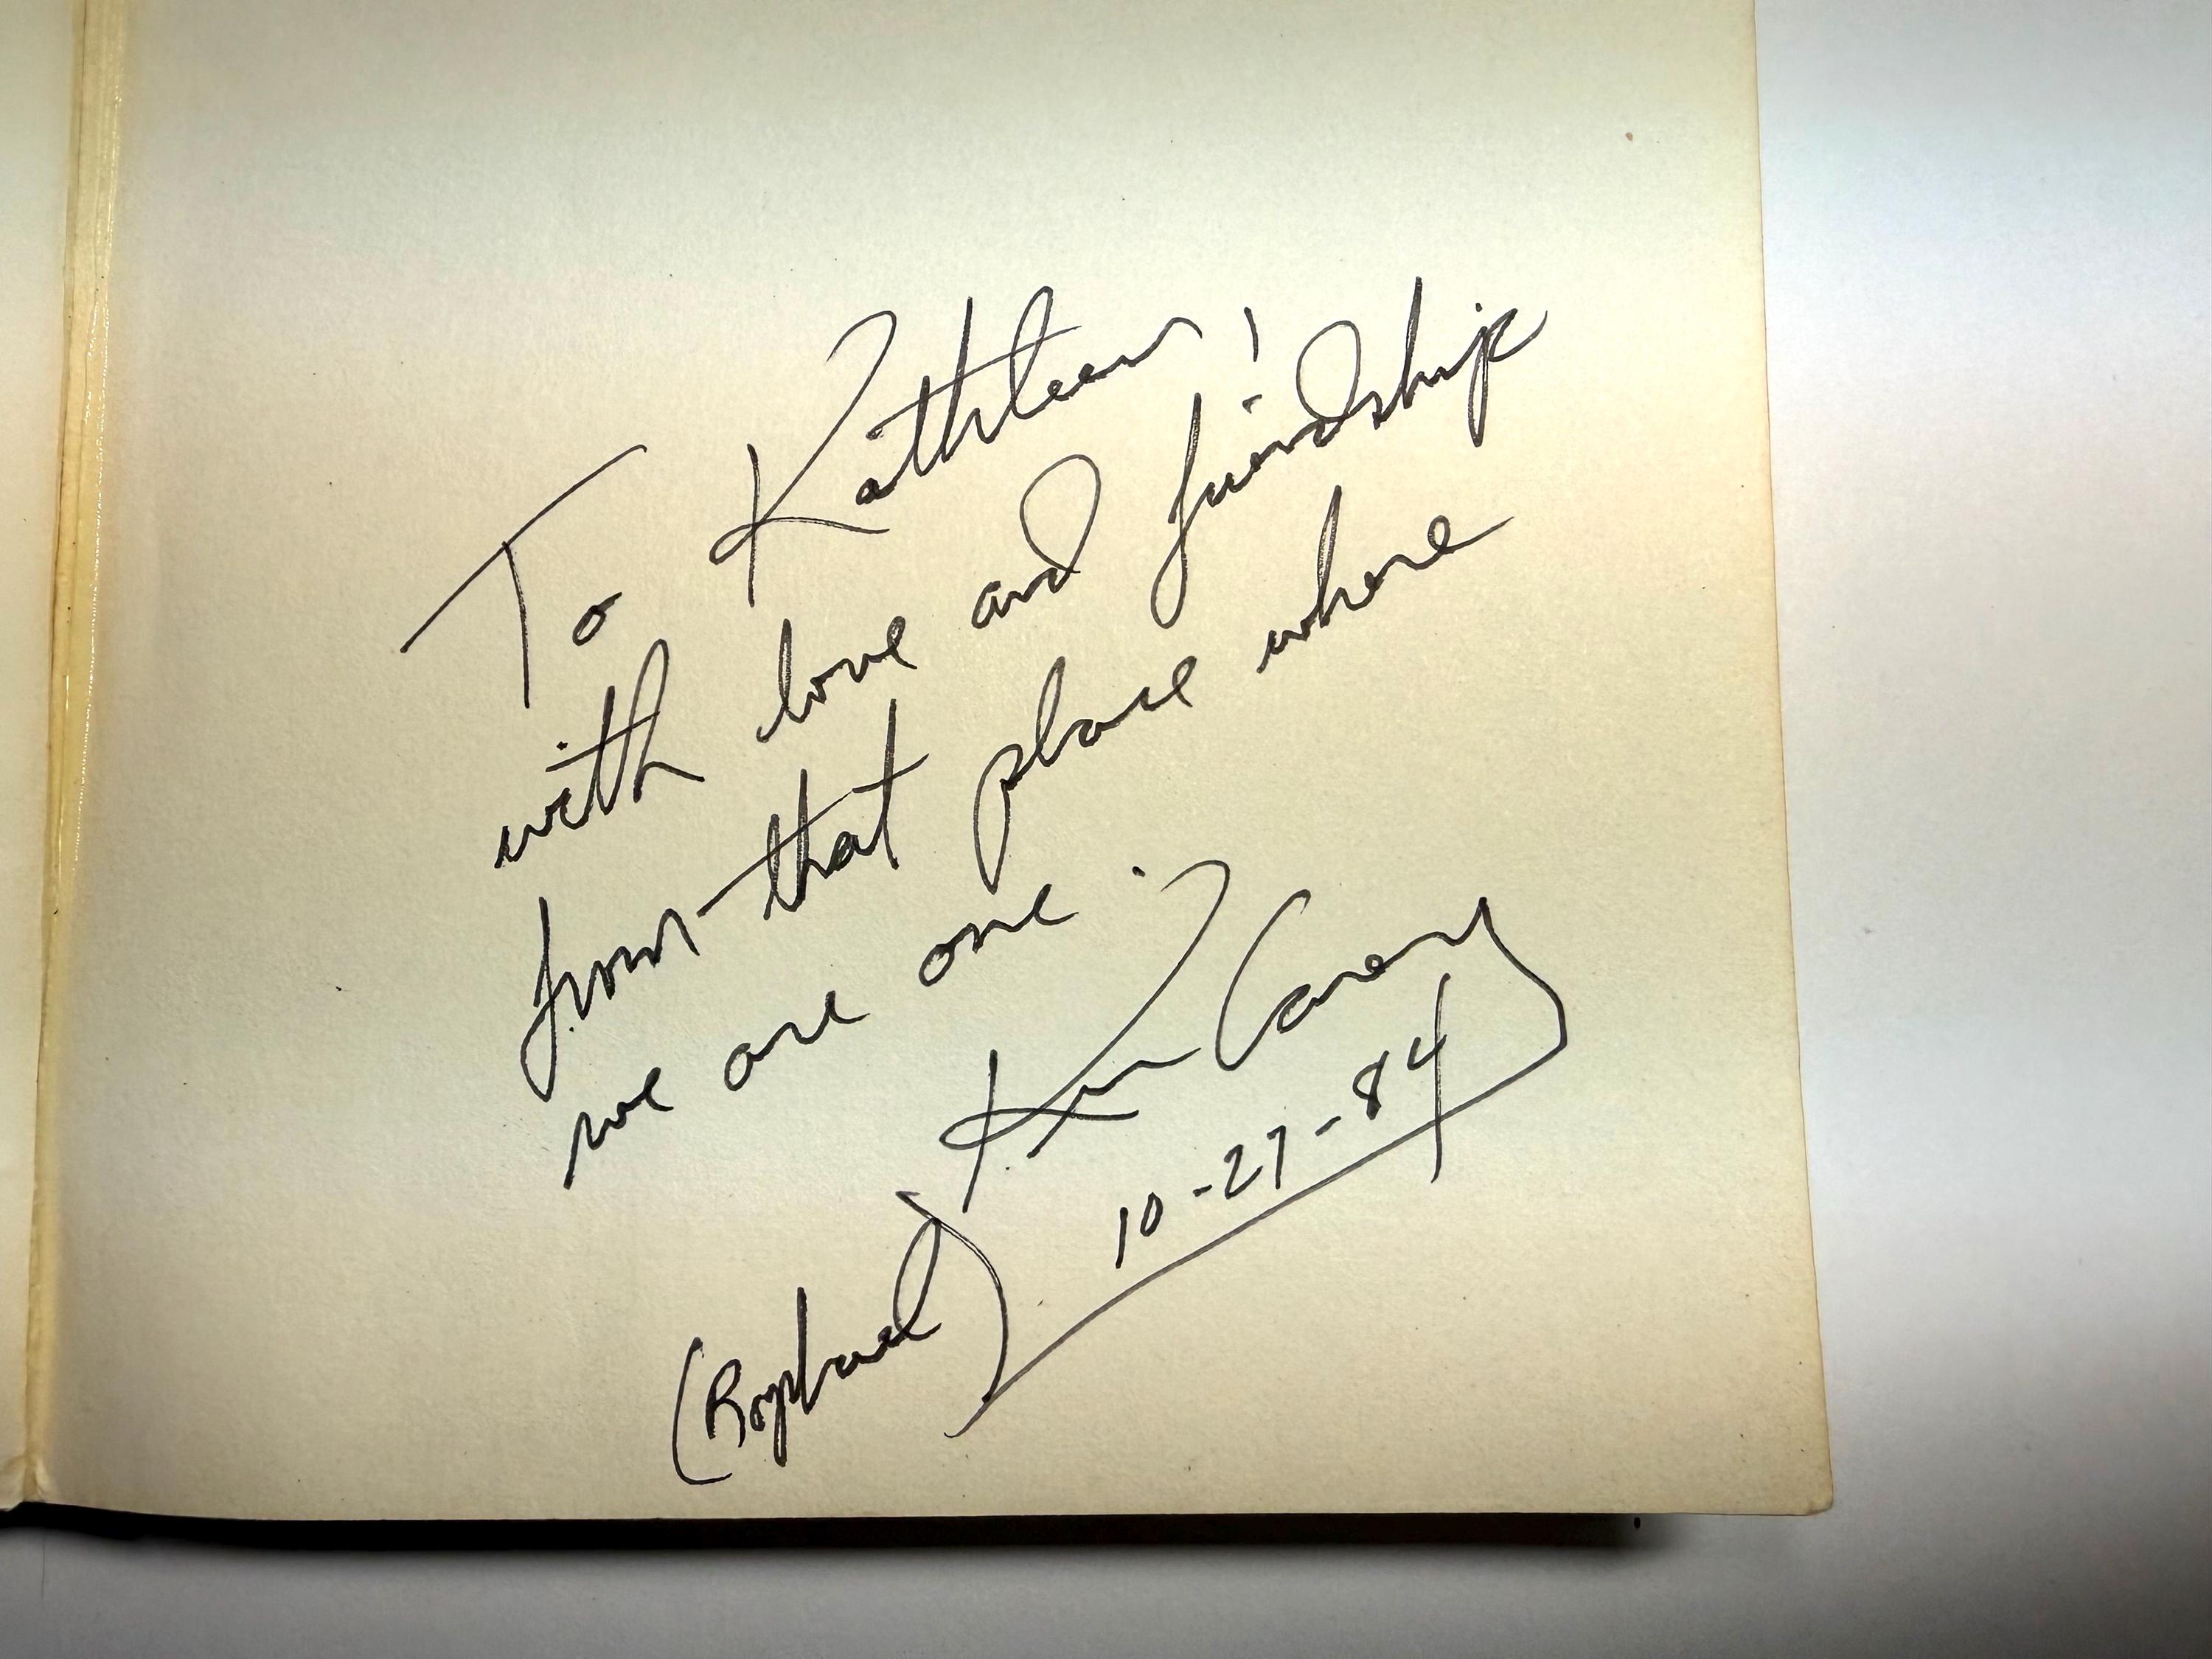 To Kathleen!
with love and friendship
from that place where
we are one.
Ken Carey
10-27-84
(Raphael)